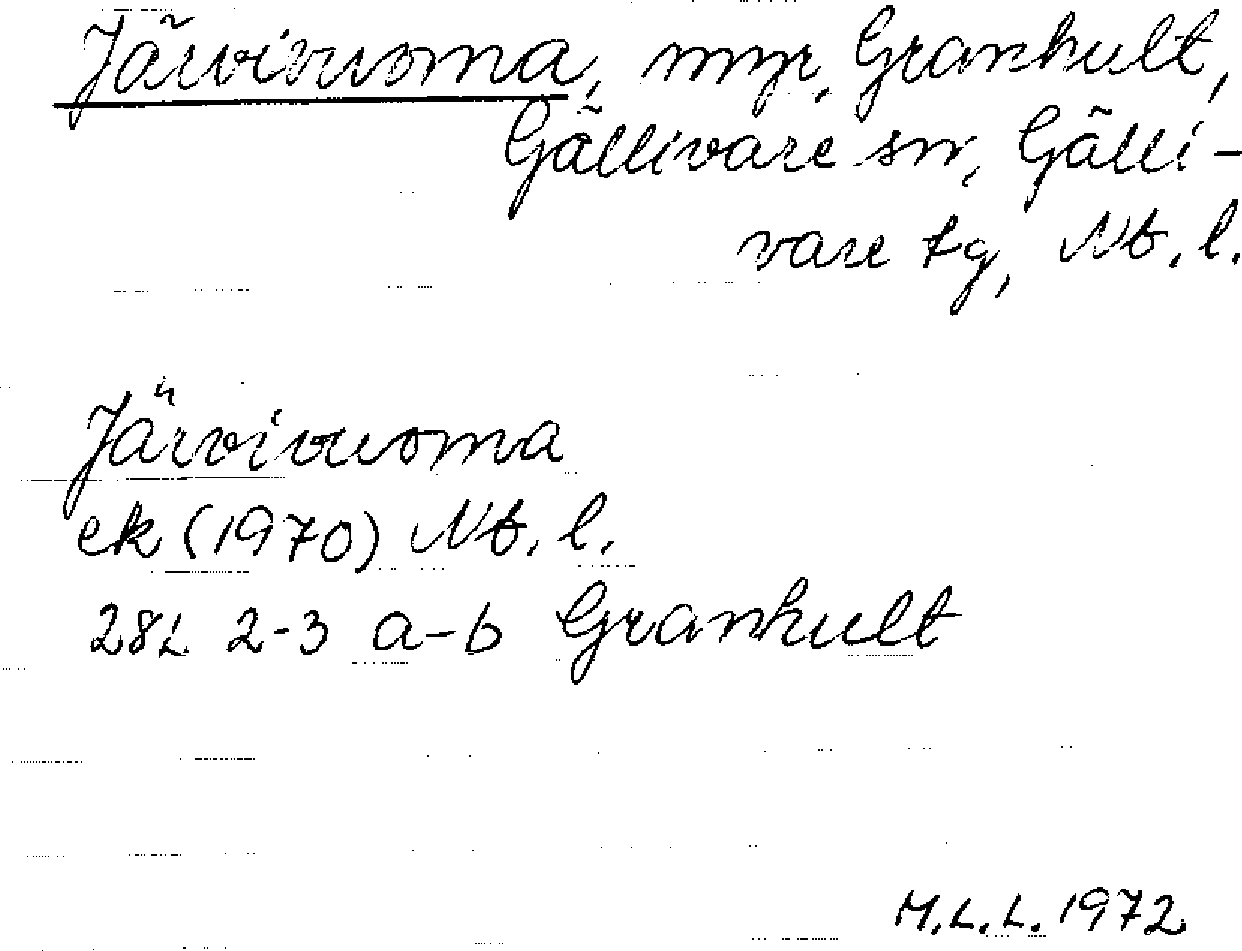 Järvivuoma, myr, Granhult,
Gällivare sn, Gälli-
vare tg, Nb. l.
Järvivuoma
ek (1970) Nb. l.
28L 2-3 a-b Granhult
M.L.L. 1972